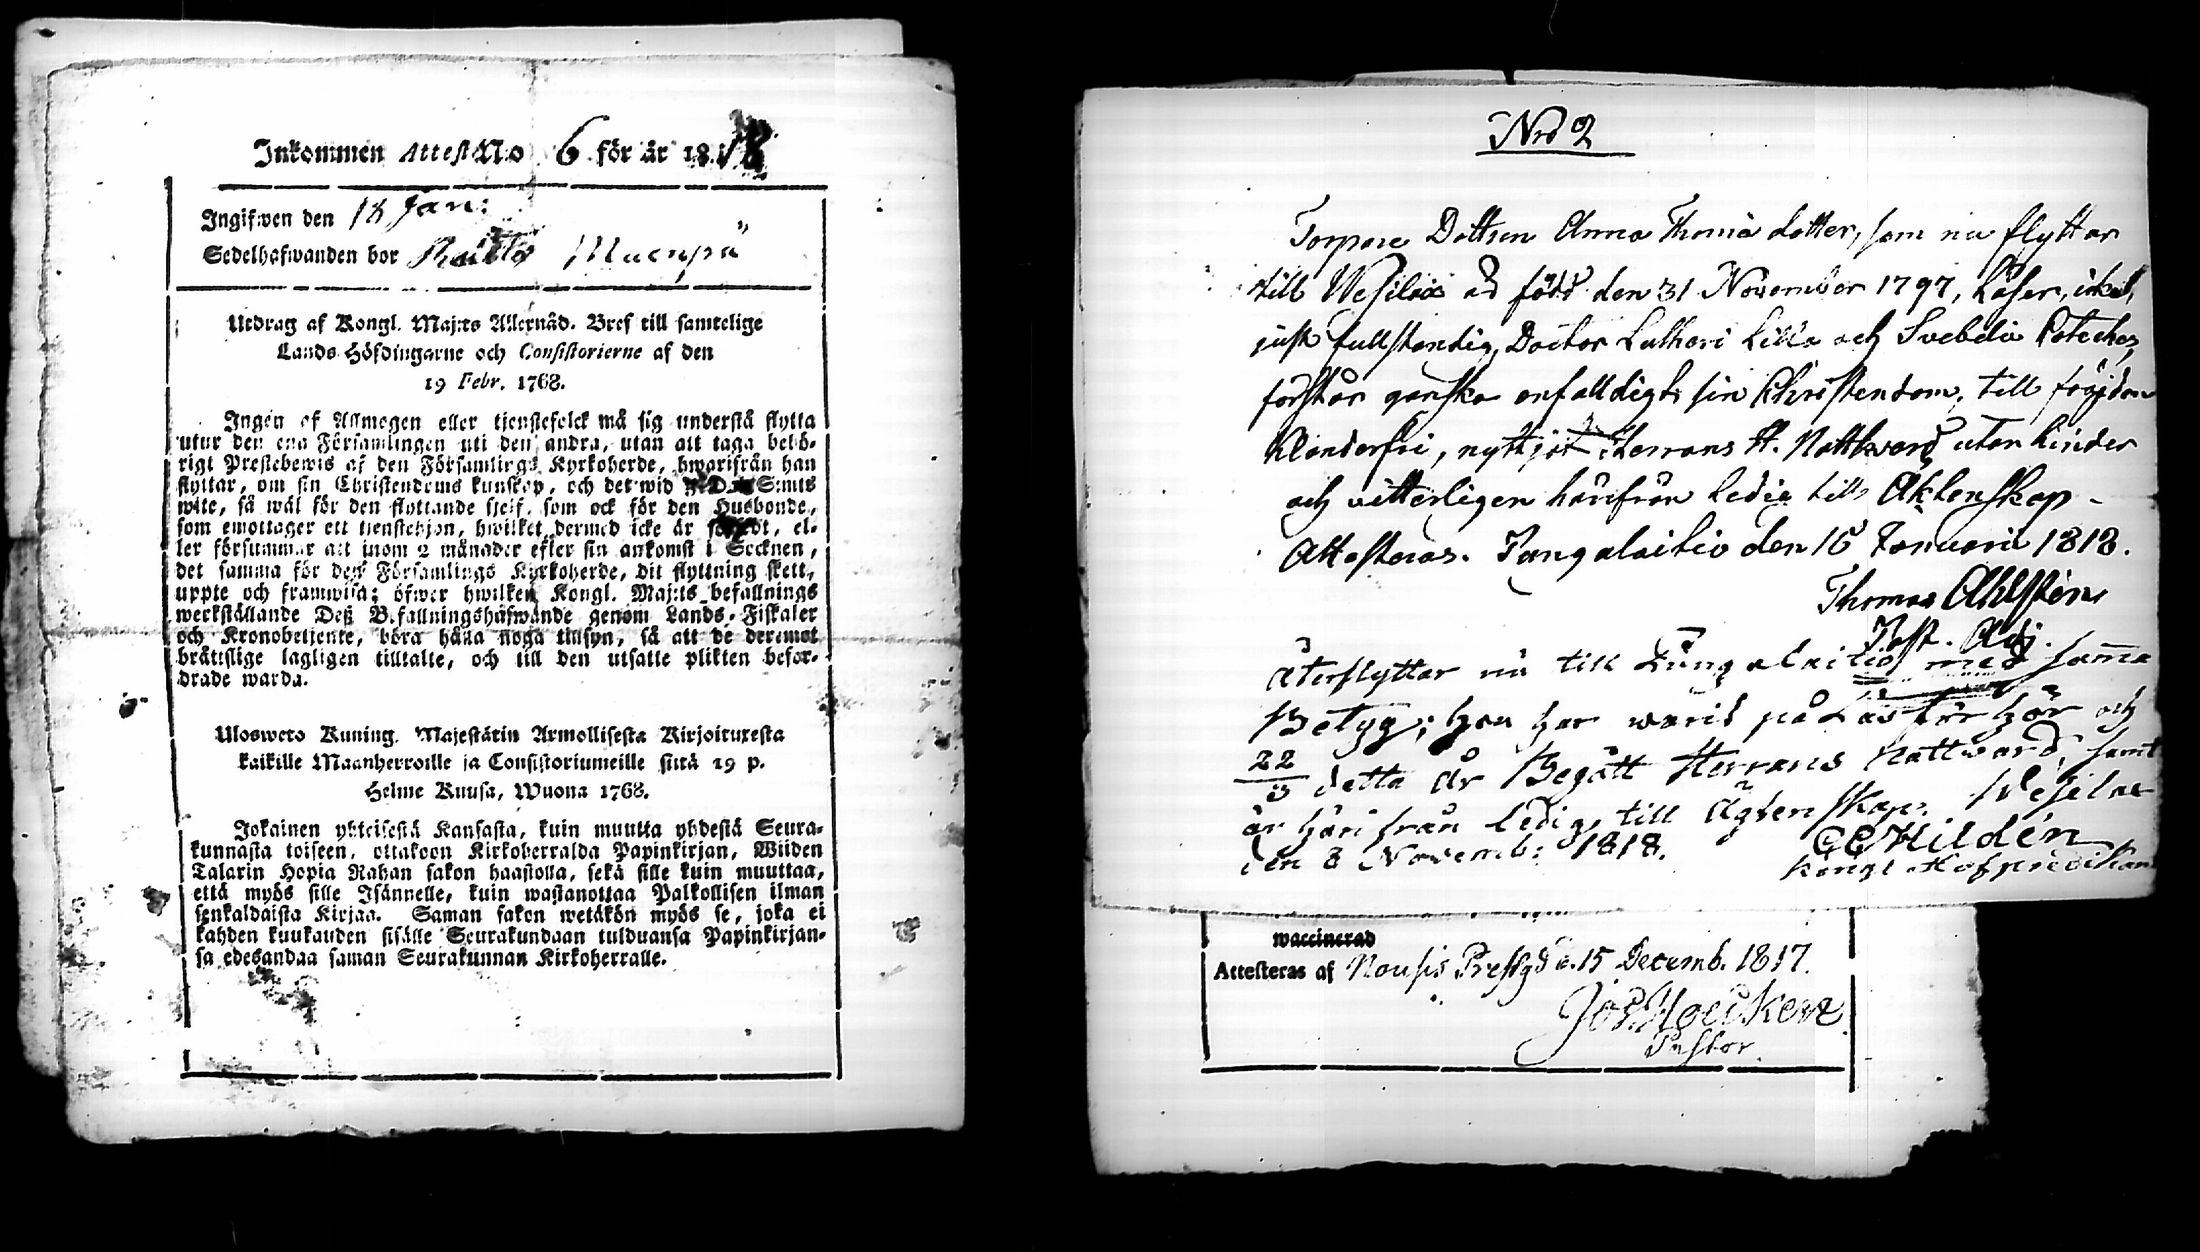 Inkommen Attest No 6 för år 1818
Ingifwen den 18 Jan:
Sedelhafwanden bor
Utdrag af Kongl. Maj:ts Allernåd. Bref till samtelige
Lands-Höfdingarne och Consistorierne af den
19 Febr. 1768.
Ingen af Allmogen eller tjenstefolck må sig understå flytta
utur den ena Församlingen uti den andra, utan att taga behö-
rigt Prestebewis af den Församlings Kyrkoherde, hwarifrån han
flyttar, om sin Christendoms kunskap, och det wid Dal. S:mts
wite, så wäl för den flyttande sjelf, som ock för den Husbonde,
som emottager ett tjenstehjon, hwilket dermed icke är försedt, el-
ler försummar att inom 2 månader efter sin ankomst i Socknen,
det samma för deß Församlings Kyrkoherde, dit flyttning skett,
uppte och framwisa; öfwer hwilken Kongl. Maj:ts befallnings
werkställande Deß B.fallningshafwande genom Lands-Fiskaler
och Kronobetjente, böra hålla noga tillsyn, så att de deremot
bråttslige lagligen tilltalte, och till den utsatte plikten befor-
drade warda.
Ulosweto Kuning. Majestätin Armollisesta Kirjoituxesta
kaikille Maanherroille ja Consistoriumeille siitä 19 p.
Helme Kuusa, Wuona 1768.
Jokainen yhteisestä Kansasta, kuin muutta yhdestä Seura-
kunnasta toiseen, ottakoon Kirkoherralda Papinkirjan, Wiiden
Talarin Hopia Rahan sakon haastolla, sekä sille kuin muuttaa,
että myös sille Isännelle, kuin wastanottaa Palkollisen ilman
senkaldaista Kirjaa. Saman sakon wetäkön myös se, joka ei
kahden kuukauden sisälle Seurakundaan tulduansa Papinkirjan-
sa edesandaa saman Seurakunnan Kirkoherralle.
Nro 2
Torpare Dottren Anna Thomä dotter, som nu flyttar
till Wesilax är född den 31 November 1797, Läser,
just fullständig, Doctor Lutheri Lilla och Svebelii Cateches,
förstår ganska enfalldigt sin Christendom, till frägden
klanderfri, nyttjat Herrans H. Nattward utan hinder
och vitterligen härifrån ledig till Äktenskap -
Attesteras. Tungelaitio den 16 Januarii 1818.
Thomas Ahlstén
Past. Adj.
Återflyttar nu till Tungelaitio med samma
Betyg; hon har warit på Läsförhör och
22/3 detta År Begått Herrans Nattward, samt
är härifrån ledig till Ägtenskap. Wesilax
den 8 Novemb: 1818. CEHildén
Kongl. Hofpredikan
waccinerad
Attesteras af Nousis Prestgd d. 15 Decemb. 1817.
Pastor.